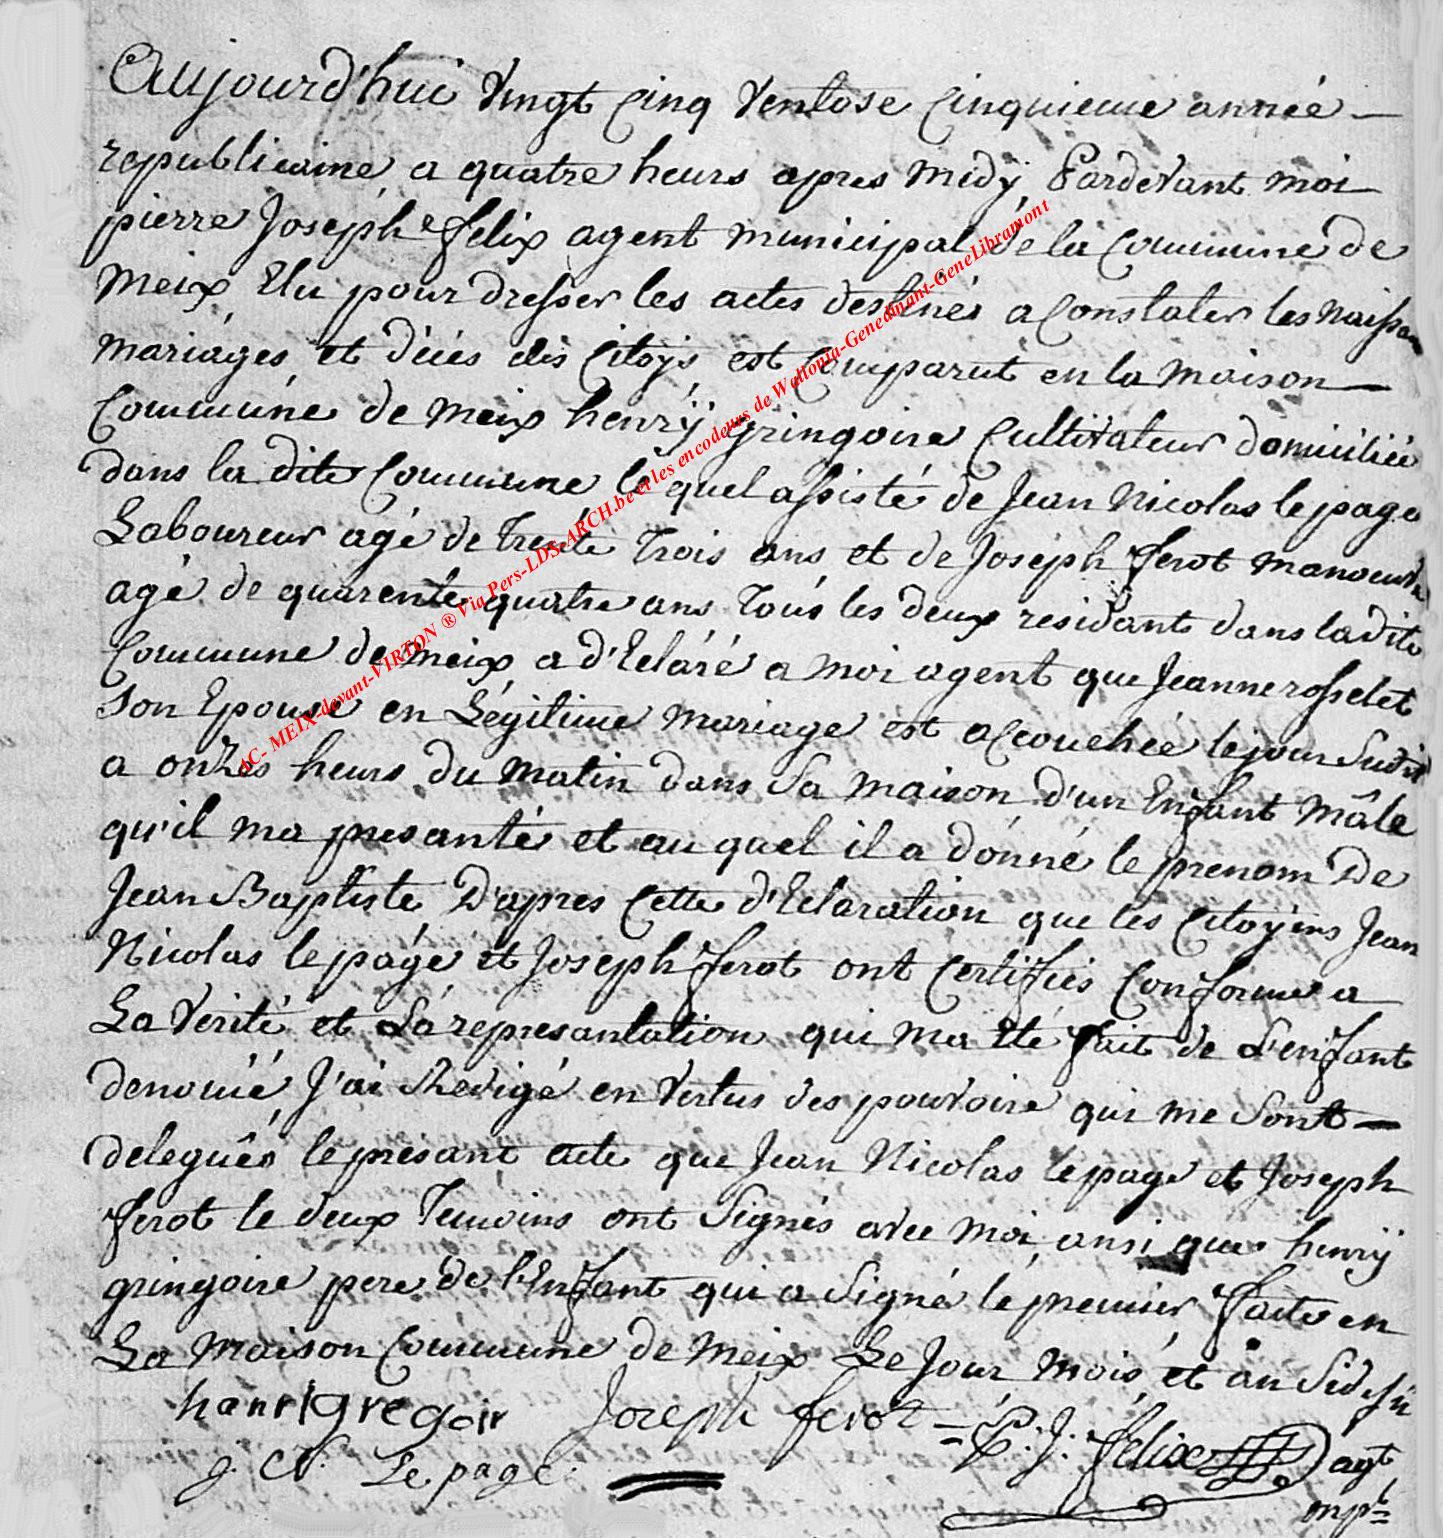 Aujourd'hui Vingt Cinq Ventose Cinquieme année
republicaine a quatre heurs apres Midÿ Pardevant moi
pierre Joseph felix agent municipal de la Commune de
Meix Elu pour dresser les actes destinés a Constater les Naissan
Mariages et décés des Citoÿs est Comparut en la Maison
Commune de Meix henrÿ gringoire Cultivateur domicilié
dans la dite Commune le quel assisté de Jean Nicolas lepage
Laboureur agé de trente Trois ans et de Joseph ferot manoeuvre
agé de quarente quatre ans Tous les deux residant dans la dite
Commune de Meix a d'Eclaré a moi agent que Jeanne rosselet
son Epouse en Légitime mariage est acouchée le jour Sudit
a onzes heurs du Matin dans Sa maison d'un Enfant Mâle
qu'il ma presanté et au quel il a donné le prenom De
Jean Baptiste D'apres Cette d'Eclaration que les Citoÿens Jean
Nicolas lepage et Joseph ferot ont Certifiés Conforme a
La Verité et La represantation qui ma eté fait de L'enfant
denomé J'ai Redigé en Vertus des pouvoire qui me Sont
delegués le presant acte que Jean Nicolas lepage et Joseph
ferot le deux Temoins ont Signés avec moi ansi que henrÿ
gringoire pere de l'Enfant qui a Signé le premier faite en
La Maison Commune de Meix Le Jour mois et an Sidesu
hanri gregoir Joseph ferot P. J. felix agt
j. N. Le page mpl
AC- MEIX-devant-VIRTON ® Via Pers-LDS-ARCH.be et les encodeurs de Wallonia-Genedinant-GeneLibramont